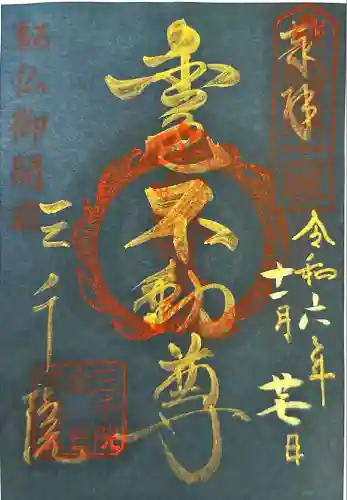 奉拝
令和六年
十一月廿七日
黄不動尊
秘仏御開扉
三千院